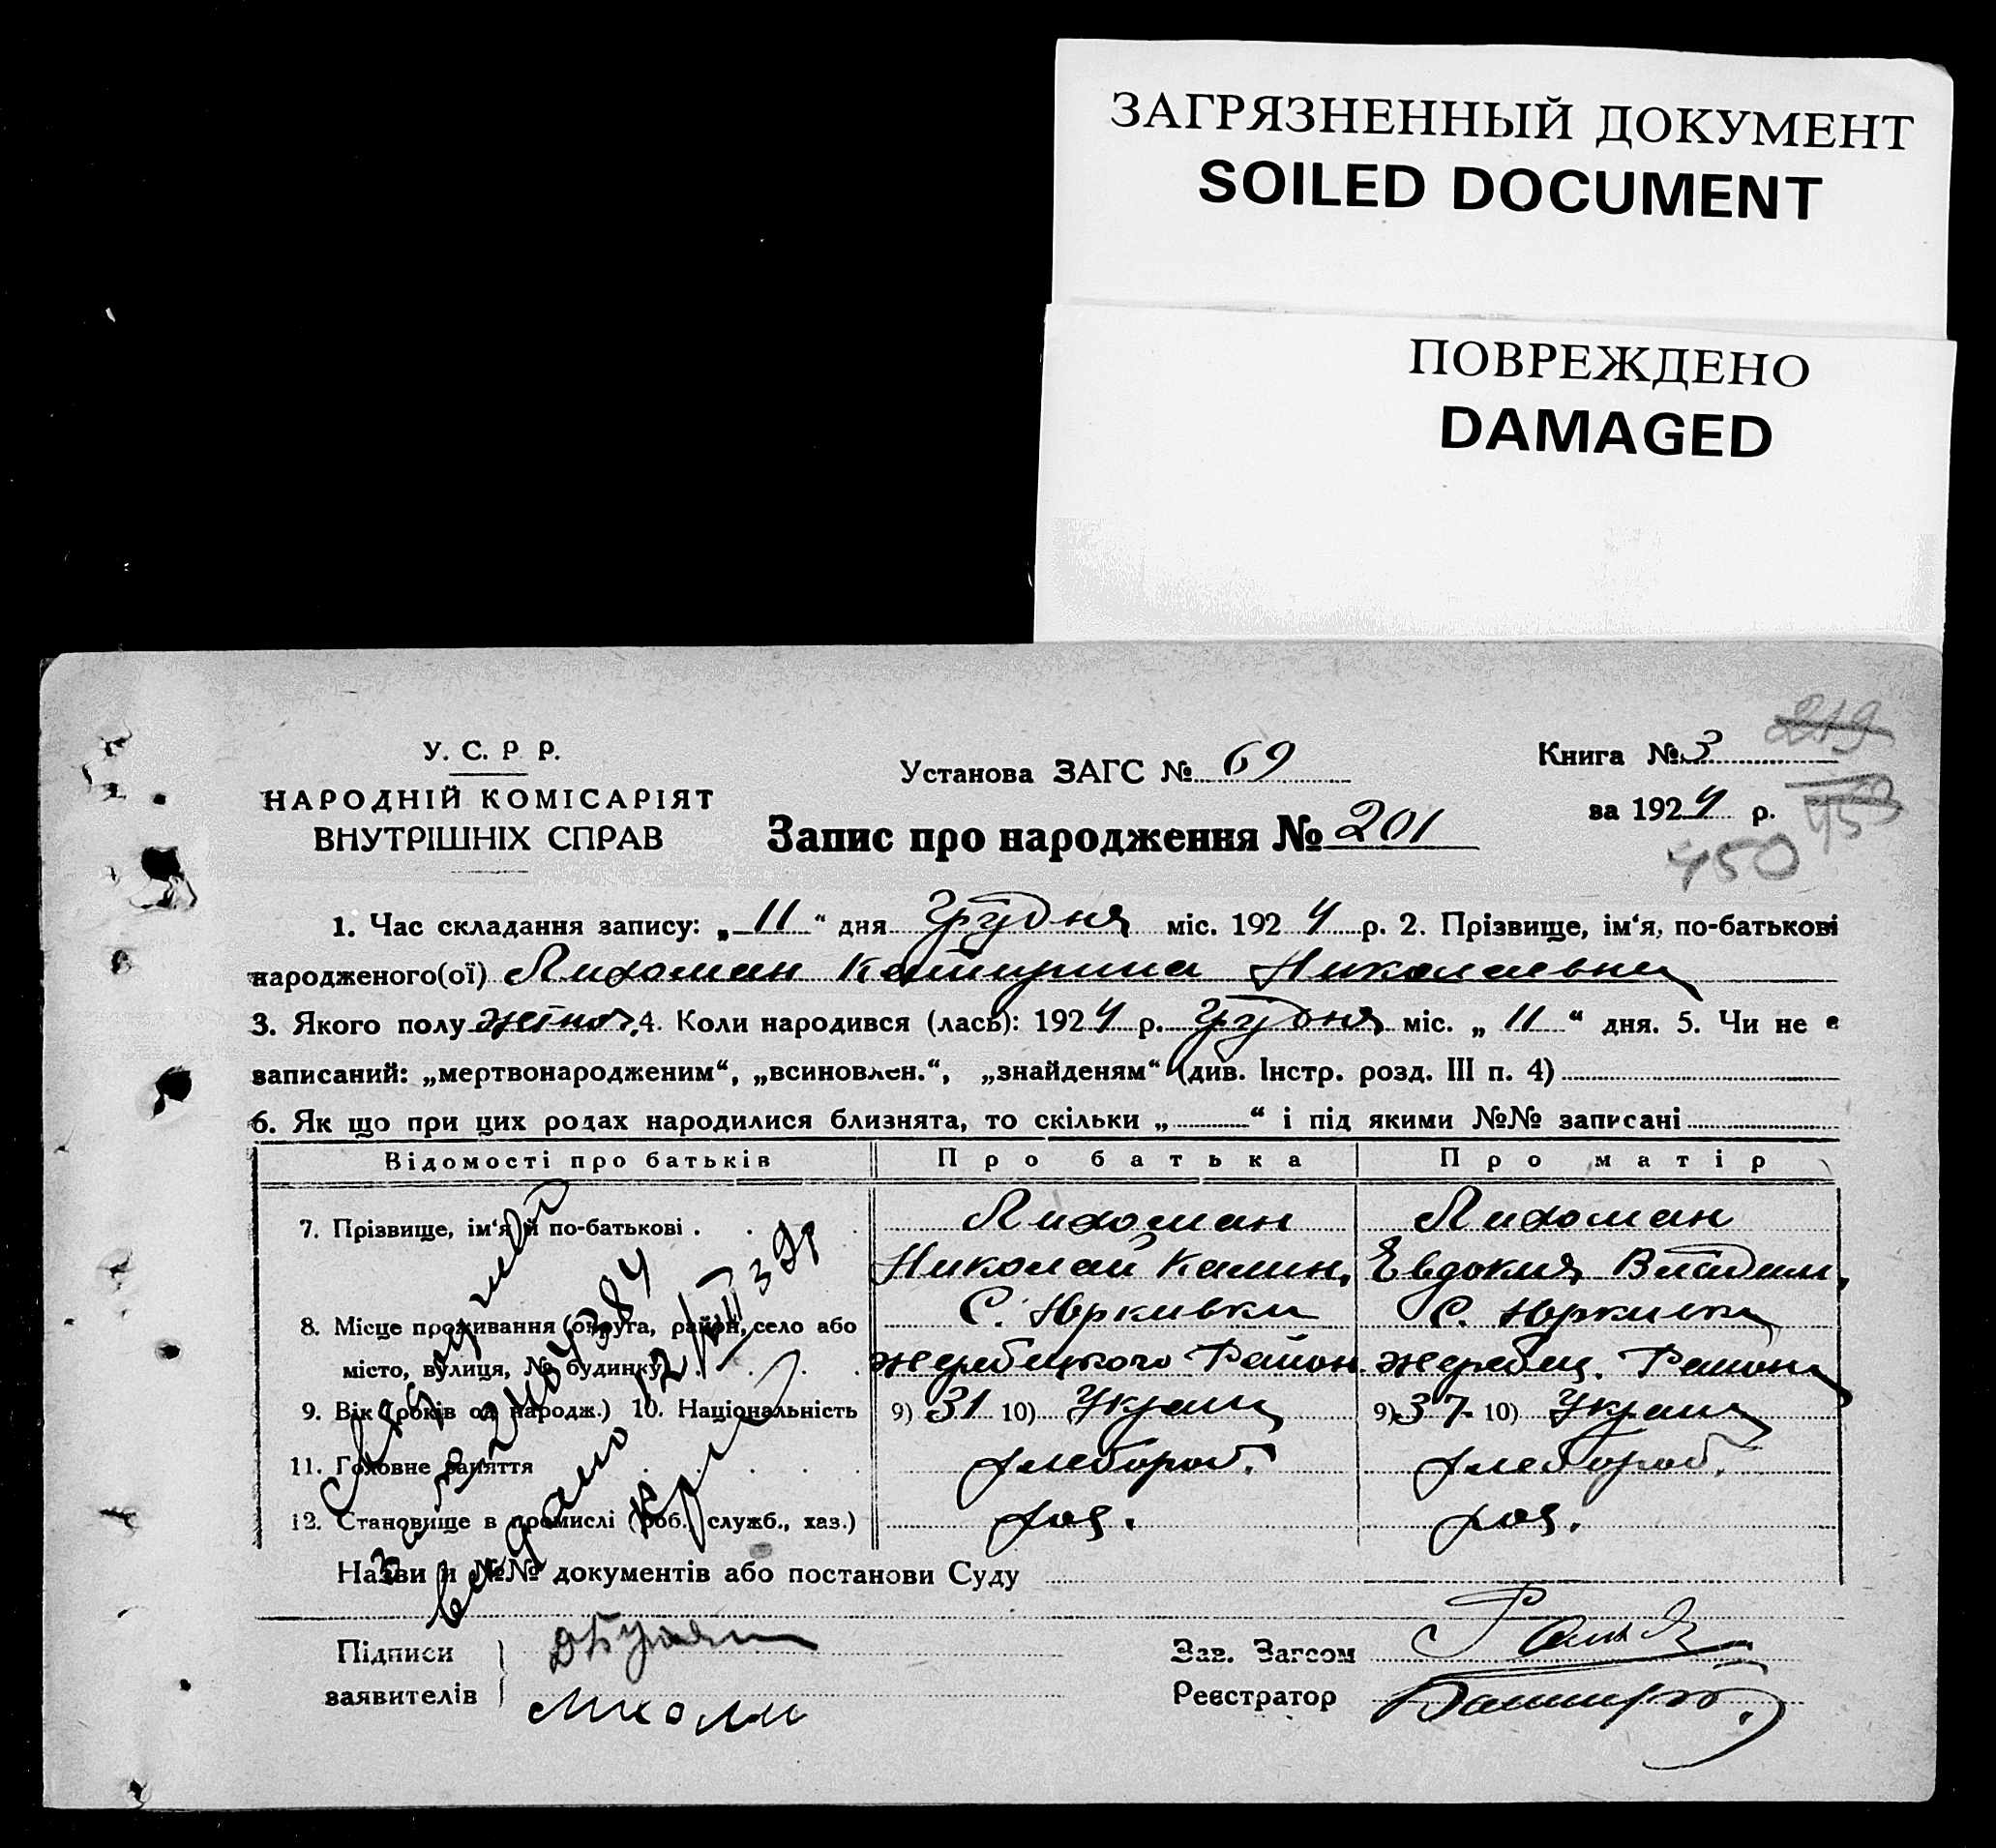 ЗАГРЯЗНЕННЫЙ ДОКУМЕНТ
SOILED DOCUMENT
ПОВРЕЖДЕНО
DAMAGED
У. С. Р Р.
НАРОДНІЙ КОМІСАРІЯТ
ВНУТРІШНІХ СПРАВ
Установа ЗАГС № 69
Запис про народження № 201
Книга № 3
219
за 1924 р.
453
450
1. Час складання запису: „11“ дня Грудня міс. 1924 р. 2. Прізвище, ім‘я, по-батькові
народженого(ої) Лихоман Катирина Николаевна
3. Якого полу жіноч. 4. Коли народився (лась): 1924 р. Грудня міс. „11“ дня. 5. Чи не є
записаний: „мертвонародженим“, „всиновлен.“, „знайденям“ (див. Інстр. розд. III п. 4)
6. Як що при цих родах народилися близнята, то скільки „ “ і під якими №№ записані
Відомості про батьків Про батька Про матір
7. Прізвище, ім‘я й по-батькові Лихоман Лихоман
Николай Калин. Евдокия
8. Місце проживання (округа, район, село або С. Юркивка С. Юркивка
місто, вулиця, № будинку) Жеребецкого Район. Жеребец. Района
9. Вік (років од народж.) 10. Національність 9) 31 10) Украин 9) 37 10) Украин
11. Головне заняття хлебороб. хлебороб.
12. Становище в промислі (роб., служб., хаз.) хоз. хоз.
Назви и №№ документів або постанови Суду
Підписи
заявителів
Зав. Загсом
Реєстратор